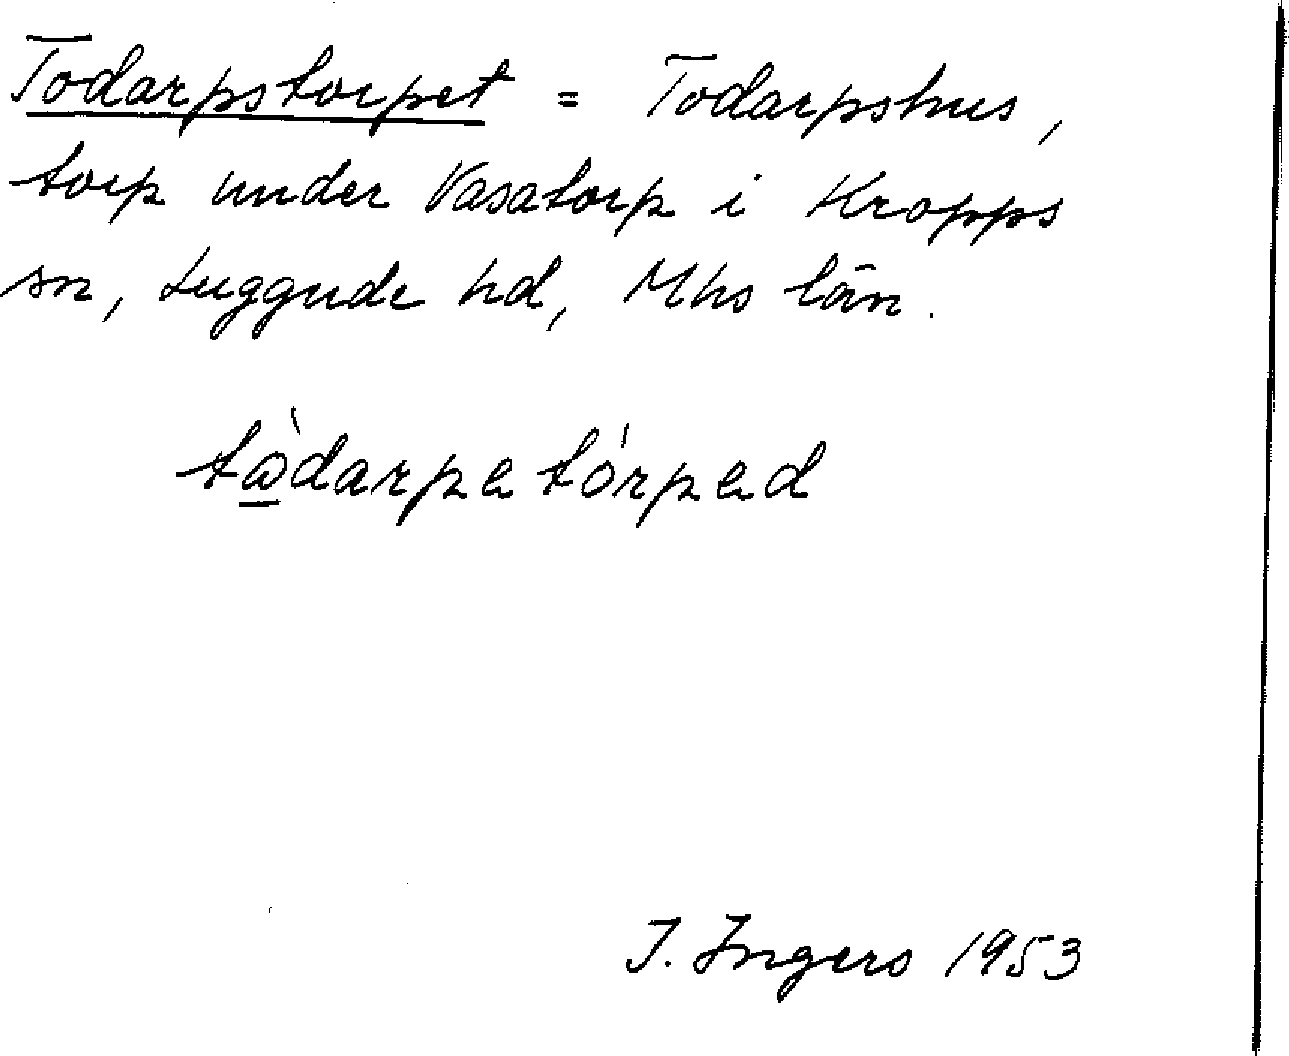 Todarpstorpet = Todarpshus,
torp under Vasatorp i Kropps
sn, Luggude hd, Mhs län.
tὼdarpatórpad
I. Ingers 1953